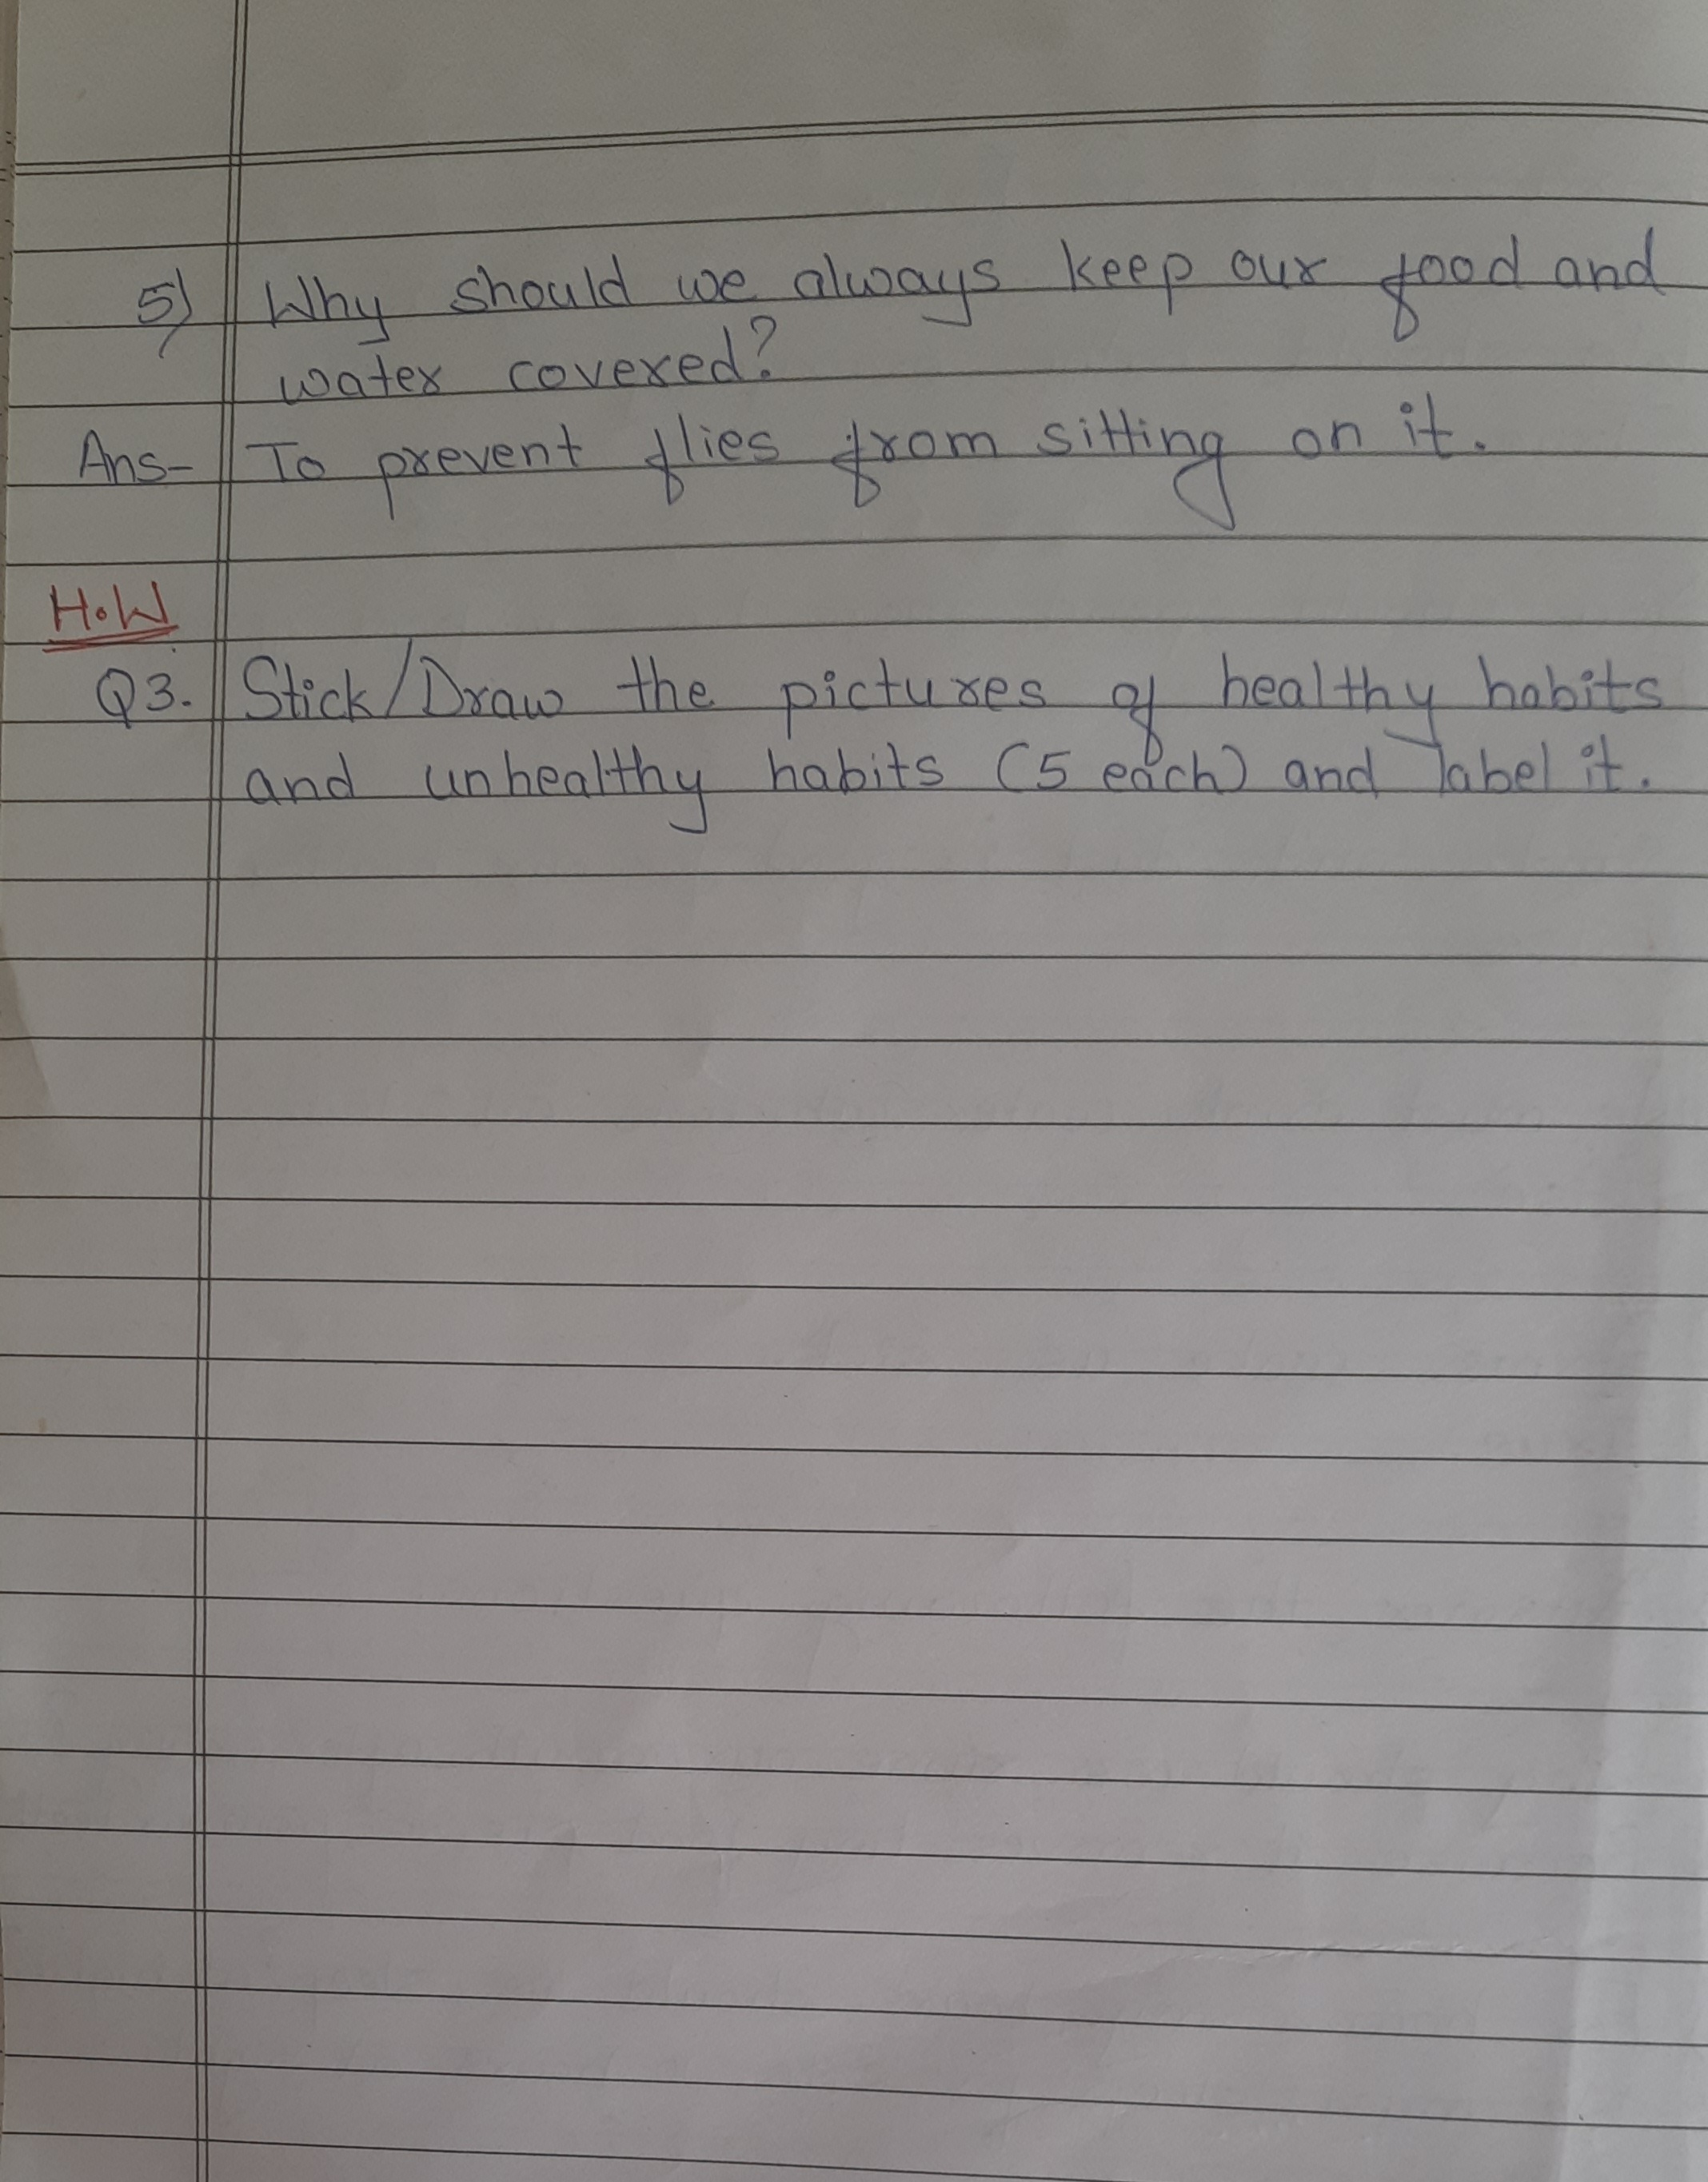 5) Why should we always keep our food and
water covered?
Ans- To prevent flies from sitting on it.
H.W
Q3. Stick/Draw the pictures of healthy habits
and unhealthy habits (5 each) and label it.